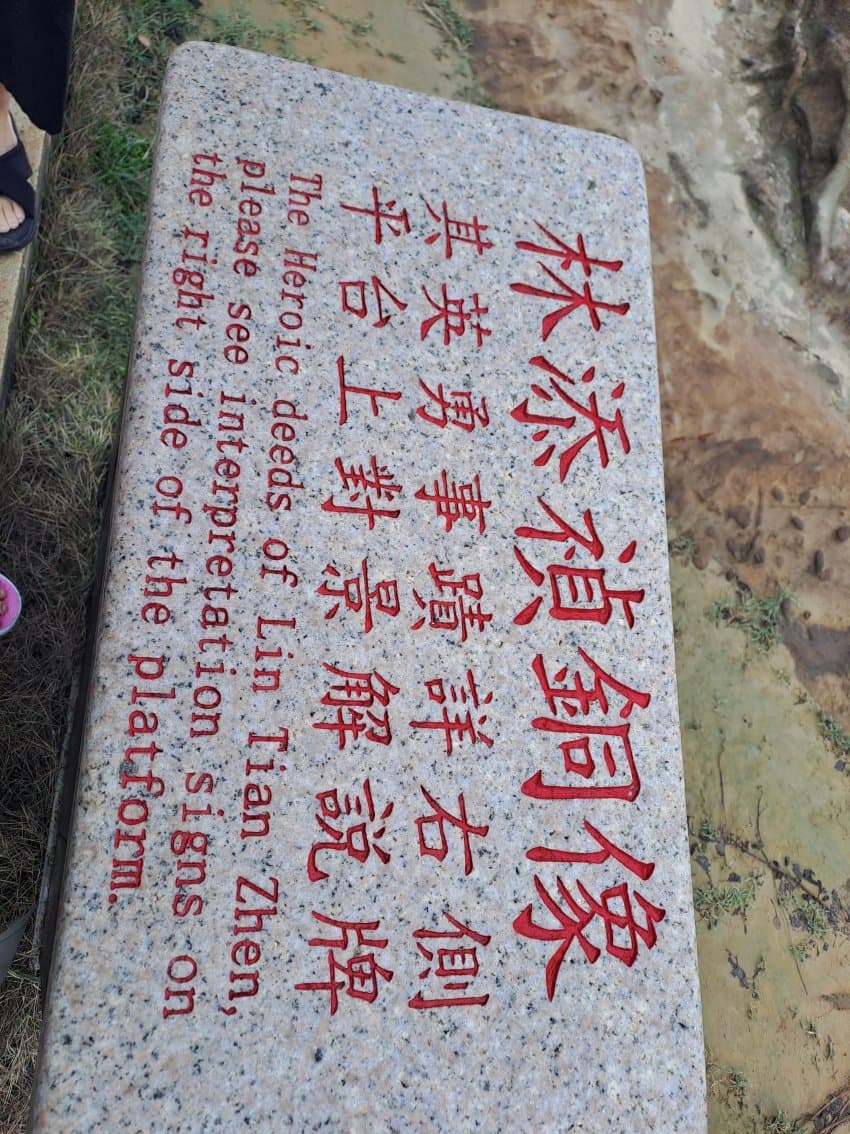 林添禎銅像
其英勇事蹟詳右側
平台上對景解説牌
The Heroic deeds of Lin Tian Zhen,
please see interpretation signs on
the right side of the platform.